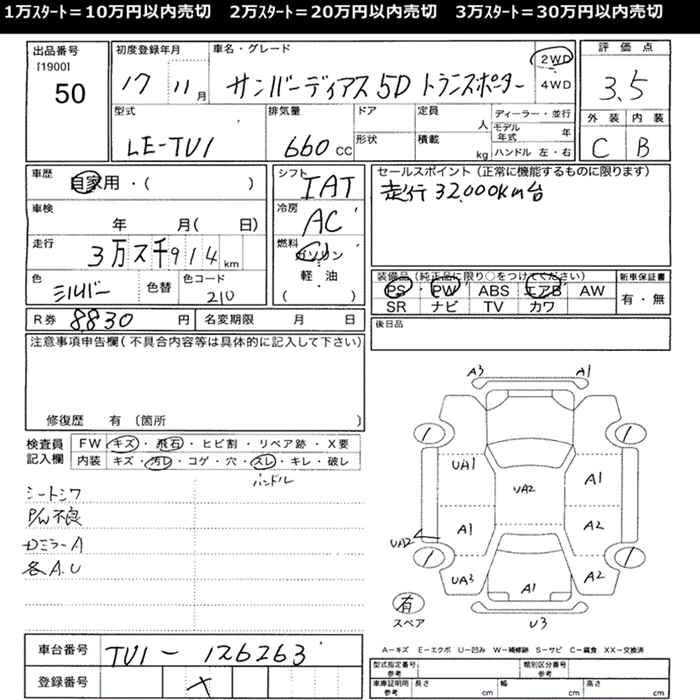 1万ｽﾀｰﾄ＝10万円以内売切　2万ｽﾀｰﾄ＝20万円以内売切　3万ｽﾀｰﾄ＝30万円以内売切
出品番号
[1900]
50
初度登録年月
17 11月
車名・グレード
サンバーディアス 5D トランスポーター
2WD
4WD
評価点
3.5
外装 内装
C B
型式
LE-TV1
排気量
660 CC
ドア
形状
定員
人
積載
kg
ディーラー・並行
モデル年式 年
ハンドル 左・右
車歴
自家用・( )
車検
年 月( 日)
走行
3万 2千 914 km
色
シルバー
色替
色コード
210
シフト
IAT
冷房
AC
燃料
ガソリン
・
軽・油
( )
セールスポイント（正常に機能するものに限ります）
走行32,000Km台
装備品（純正品に限り○をつけてください）
PS・PW ABS エアB AW
SR ナビ TV カワ
新車保証書
有・無
R券 8830 円
名変期限 月 日
後日品
注意事項申告欄（不具合内容等は具体的に記入して下さい）
修復歴 有〔箇所
検査員記入欄
FW キズ・飛石・ヒビ割・リペア跡・X要
内装 キズ・汚レ・コゲ・穴・スレ・キレ・破レ
ハンドル
シートシワ
P/W不良
Dミラー A
各A.U
A3 A1
1 1
UA1 UA2 A1
UA2 A1 A2
1 1
UA3 A1 A2
U3
有
スペア
A－キズ E－エクボ U－凹み W－補修跡 S－サビ C－腐食 XX－交換済
車台番号
TV1 - 126263
登録番号
型式指定番号
参考
類別区分番号
参考
車庫証明用
参考
長さ cm
幅 cm
高さ cm